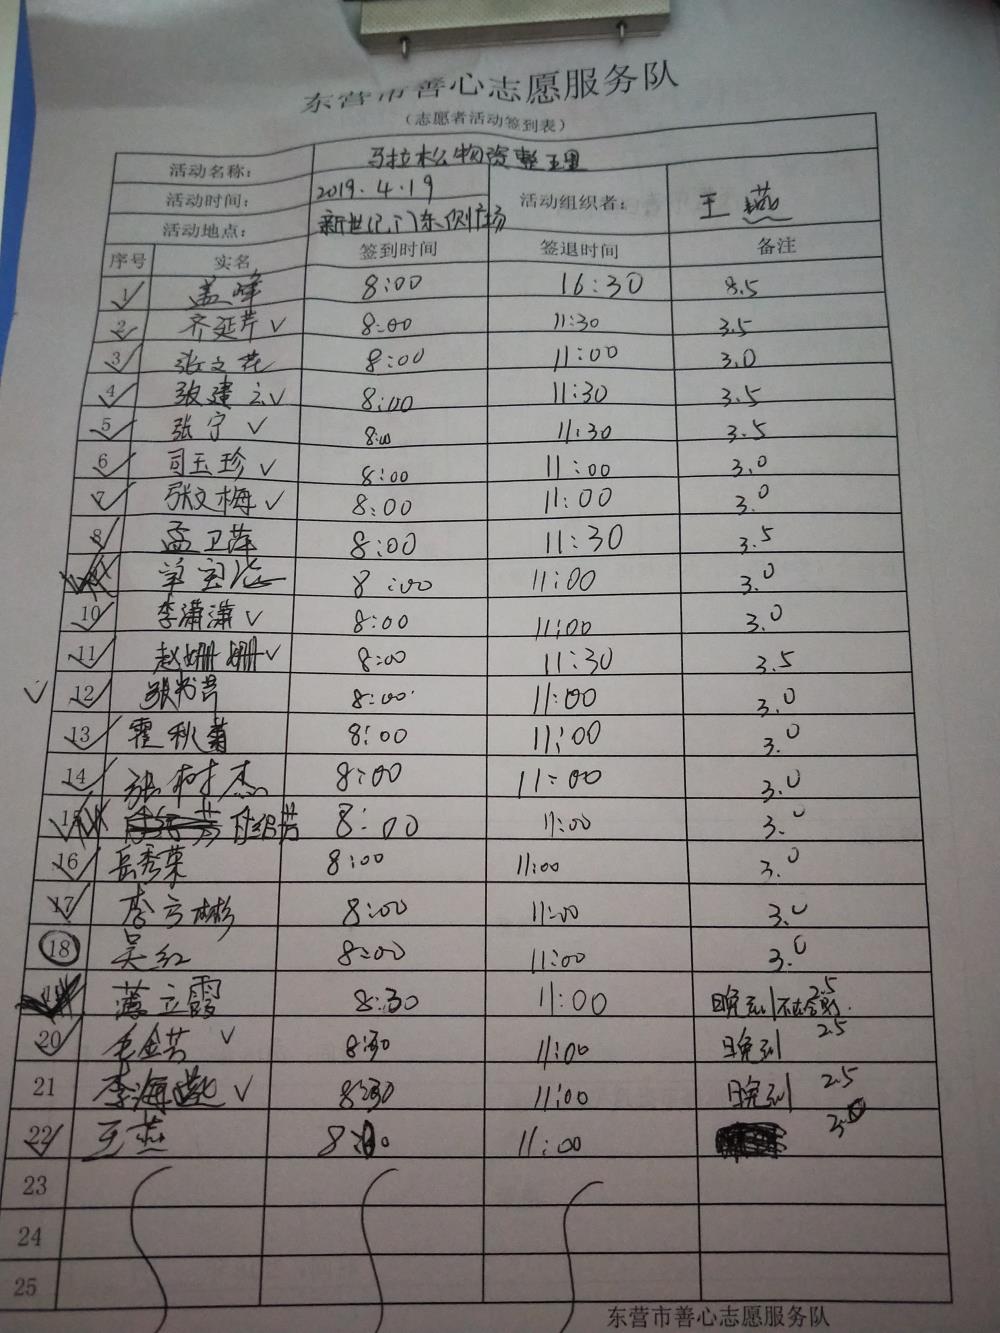 东营市善心志愿服务队
（志愿者活动签到表）
活动名称： 马拉松物资整理
活动时间： 2019.4.19 活动组织者： 王燕
活动地点： 新世纪门东侧广场
序号 实名 签到时间 签退时间 备注
1 盖峰 8:00 16:30 8.5
2 齐延芹 8:00 11:30 3.5
3 张文花 8:00 11:00 3.0
4 张建云 8:00 11:30 3.5
5 张宁 8:00 11:30 3.5
6 司玉珍 8:00 11:00 3.0
7 张文梅 8:00 11:00 3.0
8 孟卫萍 8:00 11:30 3.5
8:00 11:00 3.0
10 李潇潇 8:00 11:00 3.0
11 赵姗姗 8:00 11:30 3.5
12 张 8:00 11:00 3.0
13 霍秋菊 8:00 11:00 3.0
14 张树杰 8:00 11:00 3.0
15 8:00 11:00 3.0
16 岳秀荣 8:00 11:00 3.0
17 李 彬 8:00 11:00 3.0
18 吴红 8:00 11:00 3.0
立霞 8:30 11:00 晚到 2.5
20 毛金芳 8:30 11:00 晚到 2.5
21 李海燕 8:30 11:00 晚到 2.5
22 王燕 8:00 11:00 3.0
23
24
25
东营市善心志愿服务队